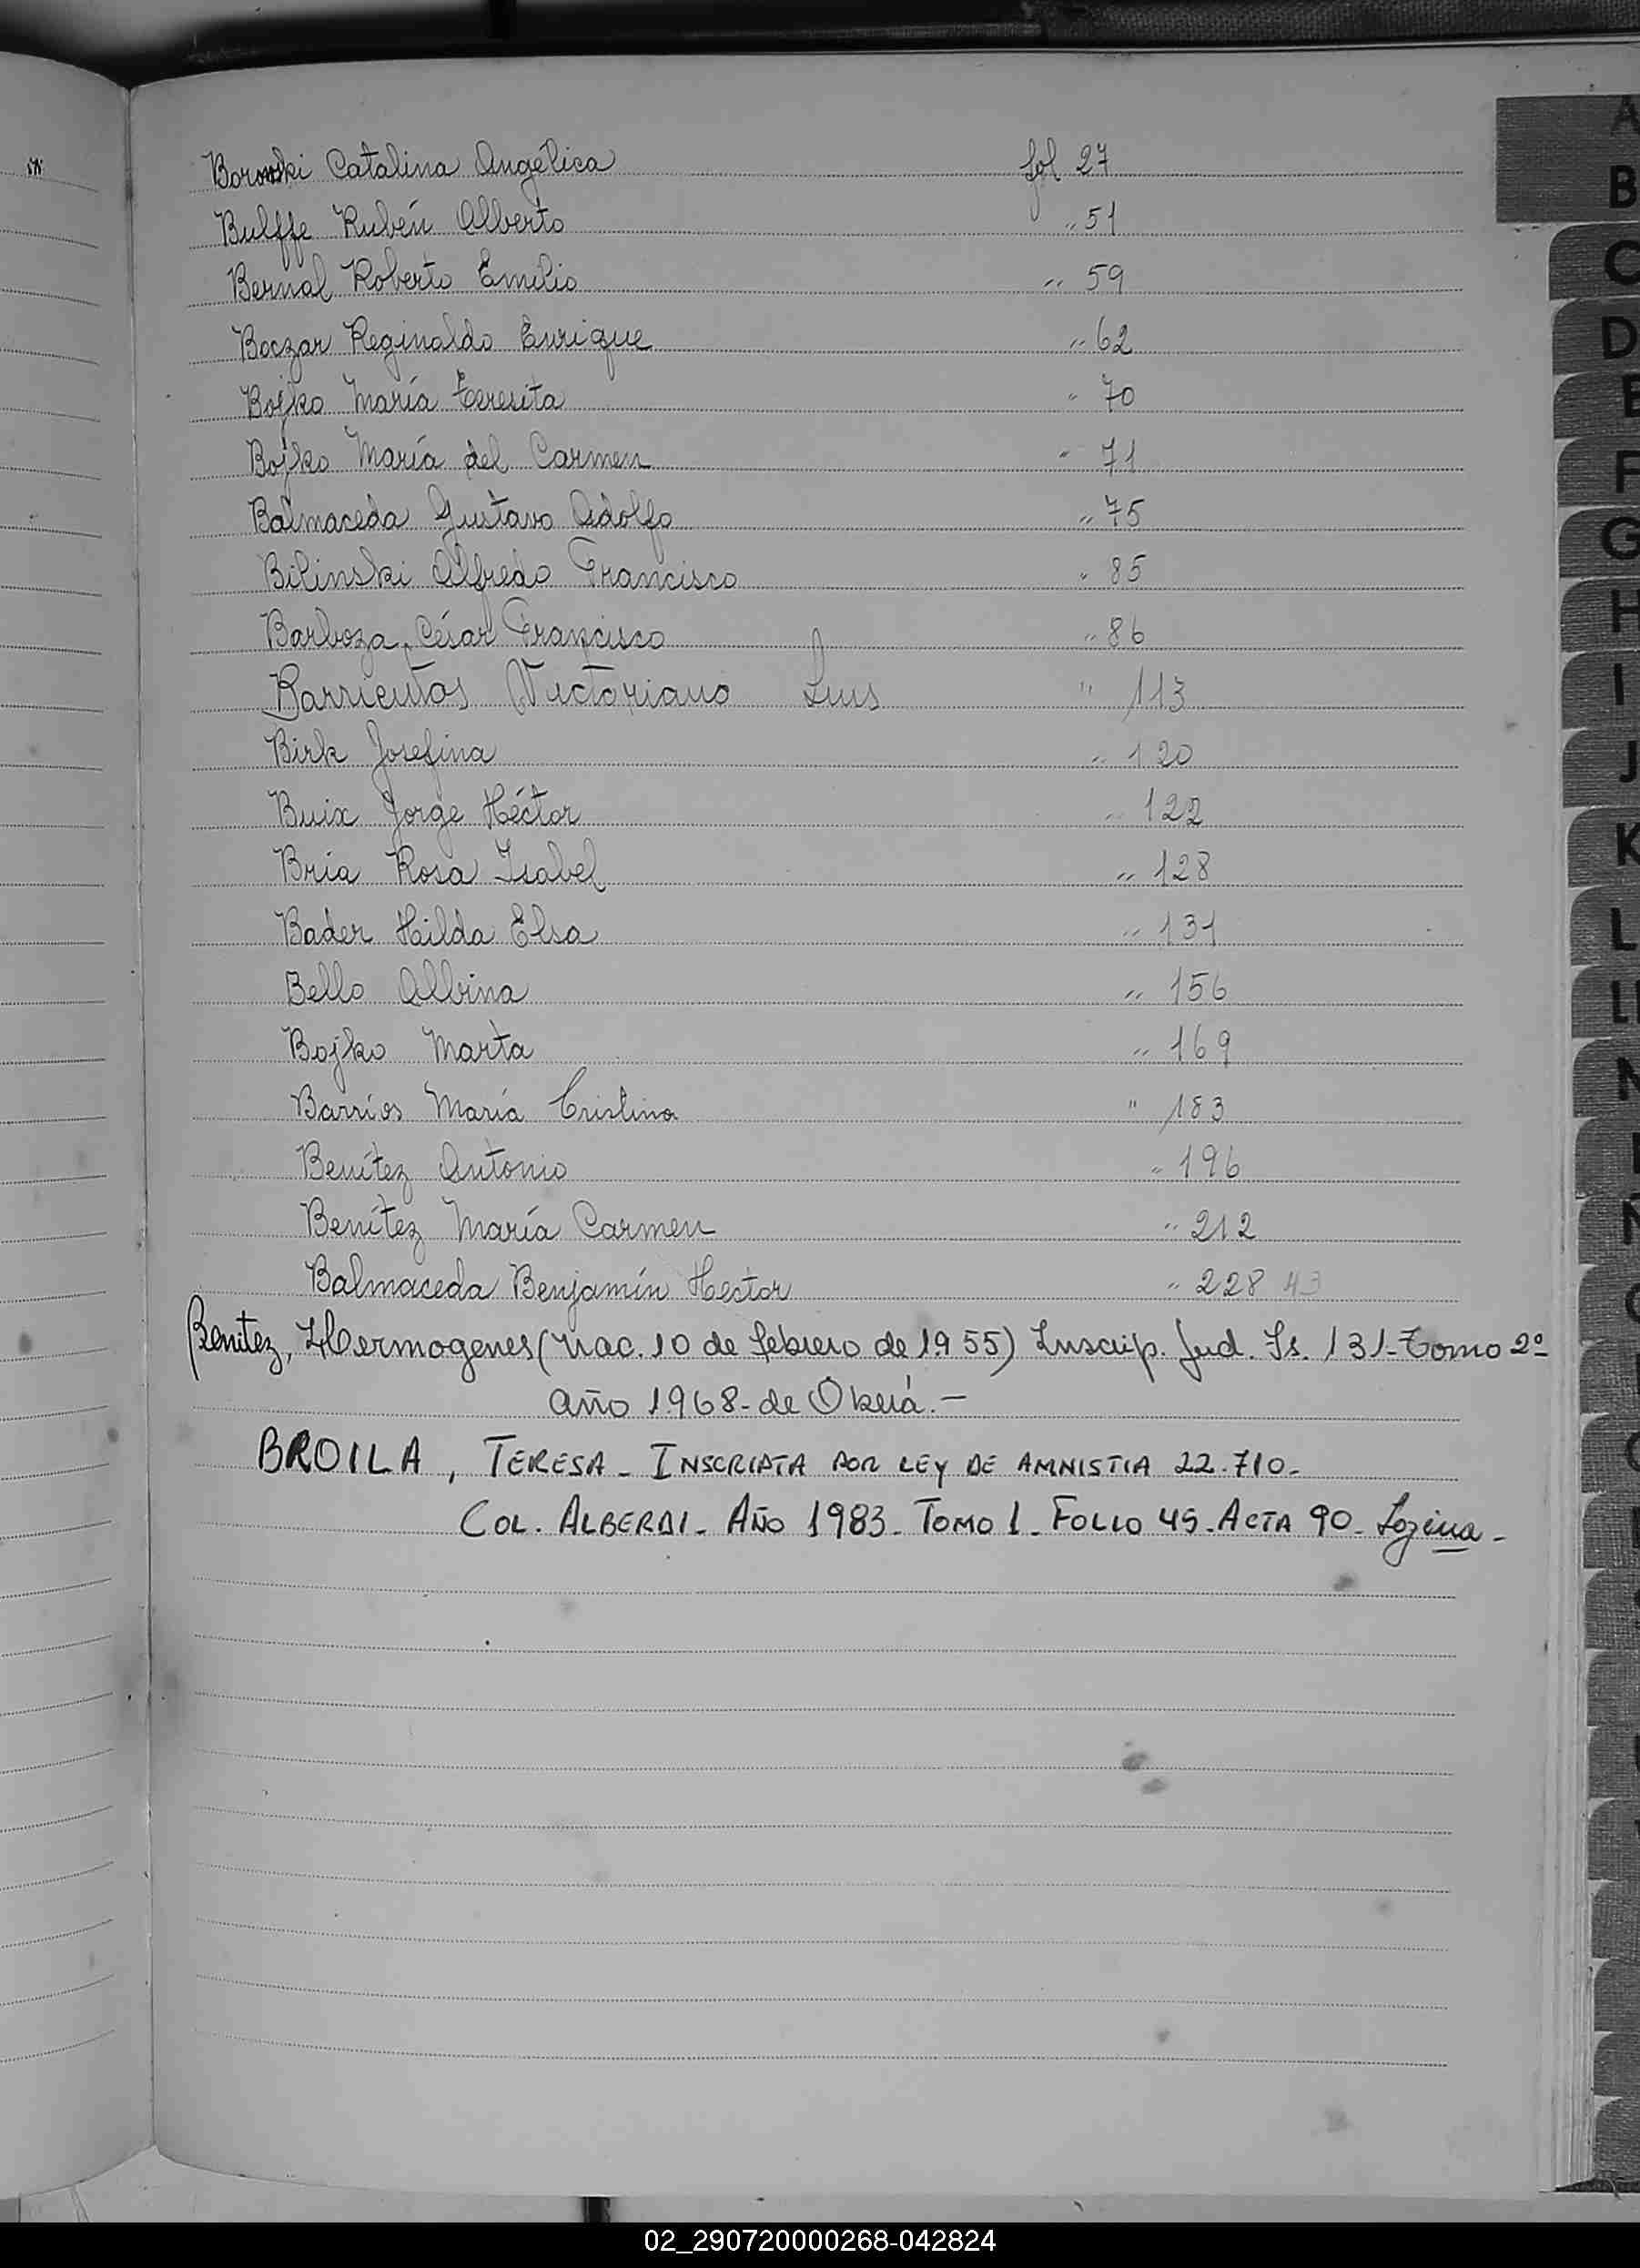 Borowski Catalina Angélica fol 27
Bulffe Rubén Alberto " 51
Bernal Roberto Emilio " 59
Boczar Reginaldo Enrique " 62
Bojko María Teresita " 70
Bojko María del Carmen " 71
Balmaceda Gustavo Adolfo " 75
Bilinski Alfredo Francisco " 85
Barboza, César Francisco " 86
Barrientos Victoriano Luis " 113
Birk Josefina " 120
Buix Jorge Héctor " 122
Bria Rosa Isabel " 128
Bader Hilda Elsa " 131
Bello Albina " 156
Bojko Marta " 169
Barrios María Cristina " 183
Benítez Antonio " 196
Benítez María Carmen " 212
Balmaceda Benjamín Hector " 228 43
Benitez, Hermogenes (nac. 10 de febrero de 1955) Inscrip. Jud. Fs. 131-Tomo 2º
año 1968-de Oberá.-
BROILA, TERESA - INSCRIPTA POR LEY DE AMNISTIA 22.710-
COL. ALBERDI - AÑO 1983 - TOMO 1 - FOLIO 45 - ACTA 90 -
A
B
C
D
E
F
G
H
I
J
K
L
Ll
N
Ñ
02_290720000268-042824